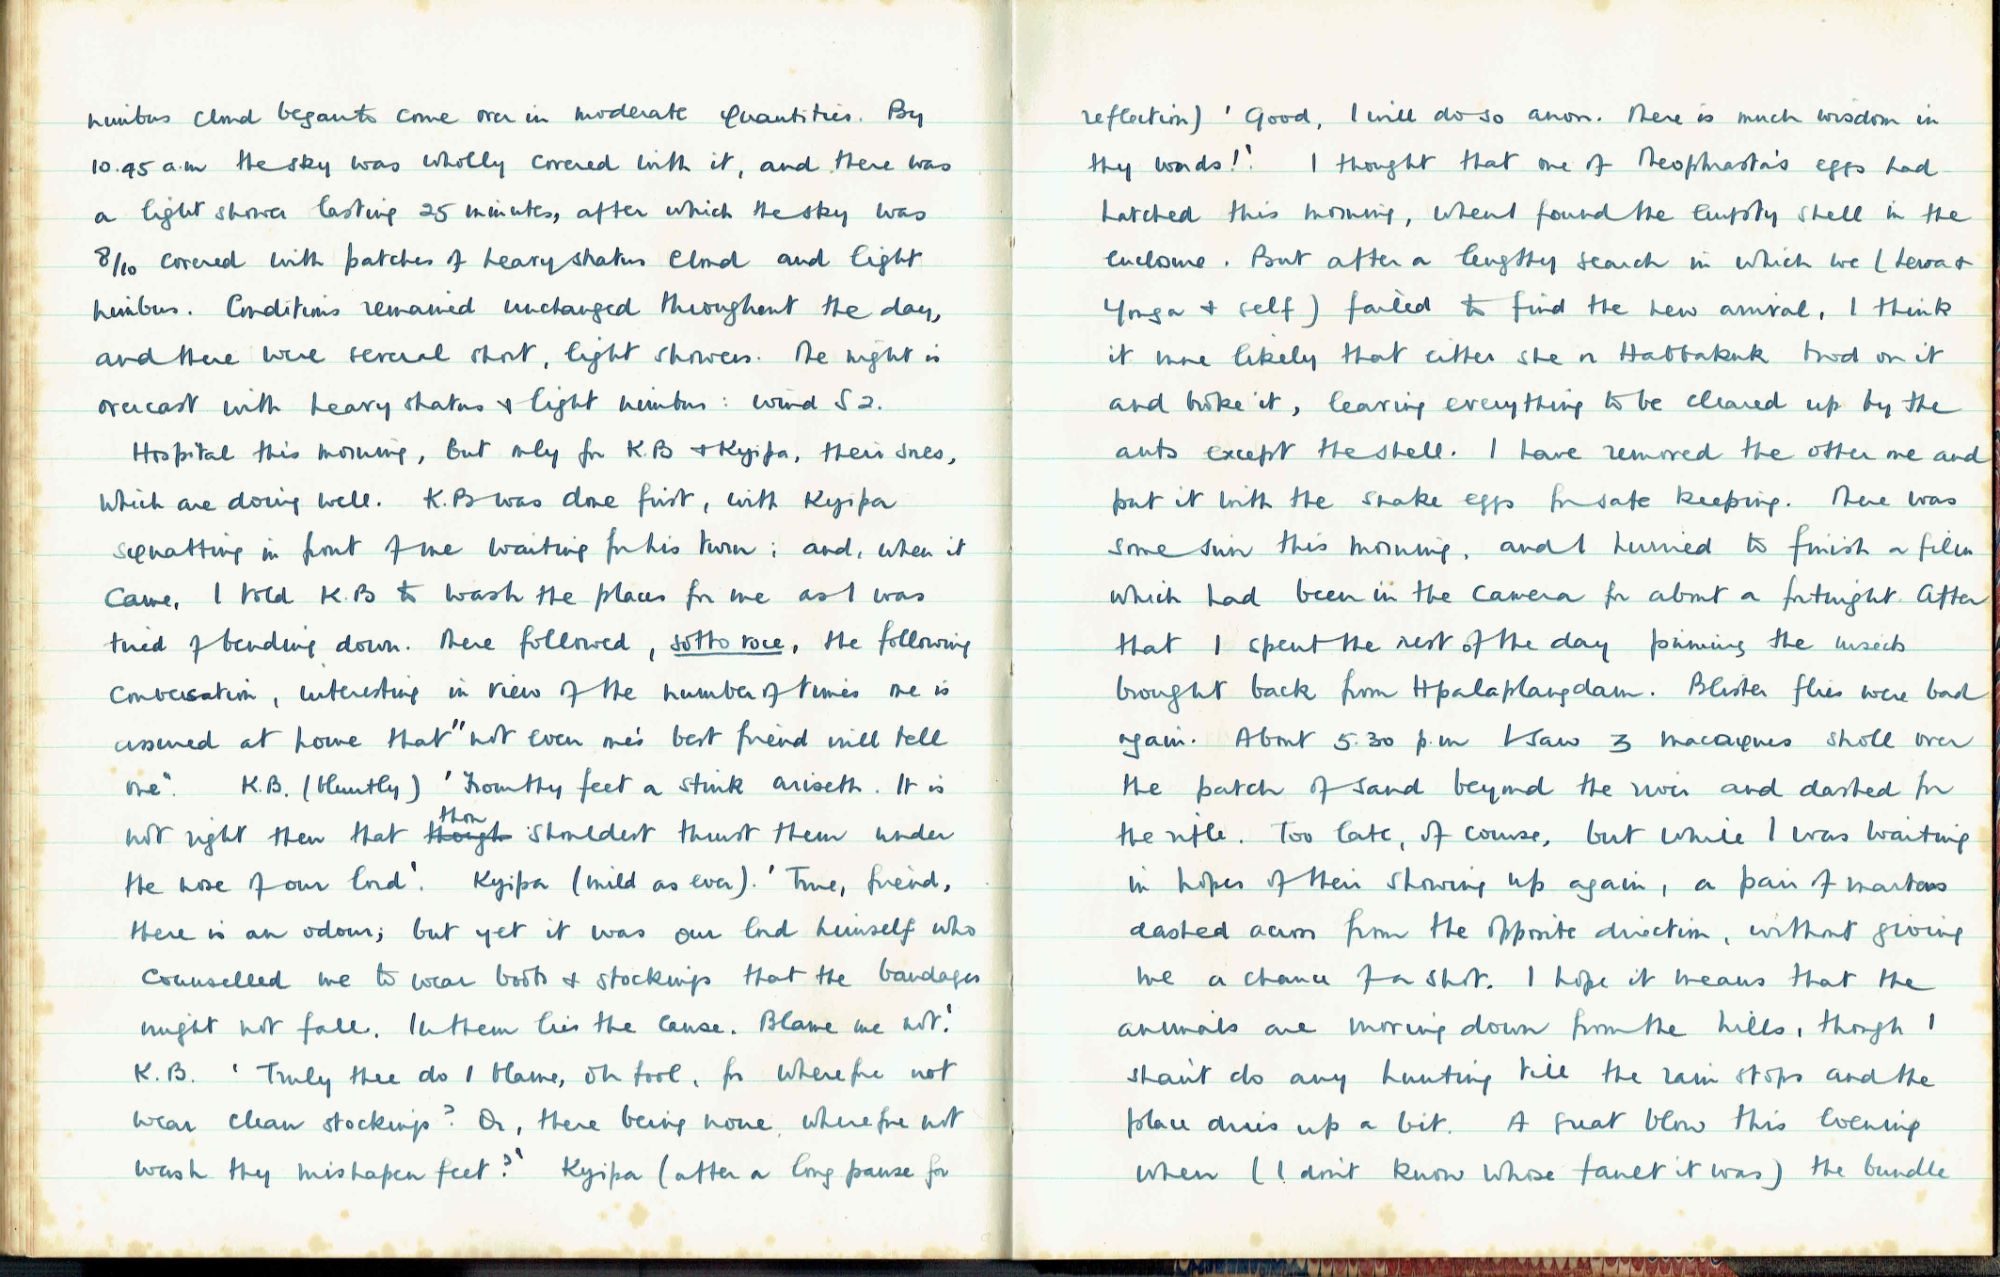 nimbus cloud began to come over in moderate quantities. By
10.45 a.m the sky was wholly covered with it, and there was
a light shower lasting 25 minutes, after which the sky was
8/10 covered with patches of heavy stratus cloud and light
nimbus. Conditions remained unchanged throughout the day,
and there were several short, light showers. The night is
overcast with heavy stratus & light nimbus: wind S2.
Hospital this morning, but only for K.B & Kyipa, their sores,
which are doing well. K.B was done first, with Kyipa
squatting in front of me waiting for his turn; and, when it
came, I told K.B to wash the places for me as I was
tired of bending down. There followed, sotto voce, the following
conversation, interesting in view of the number of times one is
assured at home that "not even one's best friend will tell
one". K.B. (bluntly) 'From thy feet a stink ariseth. It is
not right then that though thou shouldest thrust them under
the nose of our lord'. Kyipa (mild as ever). 'True, friend,
there is an odour; but yet it was our lord himself who
counselled me to wear boots & stockings that the bandages
might not fall. In them lies the cause. Blame me not!'
K.B. 'Truly thee do I blame, oh fool, for wherefore not
wear clean stockings? Or, there being none, wherefore not
wash thy mishapen feet?' Kyipa (after a long pause for
reflection) 'Good, I will do so anon. There is much wisdom in
thy words!' I thought that one of Theophrasta's eggs had
hatched this morning, when I found the empty shell in the
enclosure. But after a lengthy search in which we (Tewa &
Yonga & self) failed to find the new arrival, I think
it more likely that either she or Habbakuk trod on it
and broke it, leaving everything to be cleared up by the
ants except the shell. I have removed the other one and
put it with the snake eggs for safe keeping. There was
some sun this morning, and I hurried to finish a film
which had been in the camera for about a fortnight. After
that I spent the rest of the day pinning the insects
brought back from Hpalaplangdam. Blister flies were bad
again. About 5.30 p.m I saw 3 macaques stroll over
the patch of sand beyond the river and dashed for
the rifle. Too late, of course, but while I was waiting
in hopes of their showing up again, a pair of martens
dashed across from the opposite direction, without giving
me a chance of a shot. I hope it means that the
animals are moving down from the hills, though I
shan't do any hunting till the rain stops and the
place dries up a bit. A great blow this evening
when (I don't know whose fault it was) the bundle